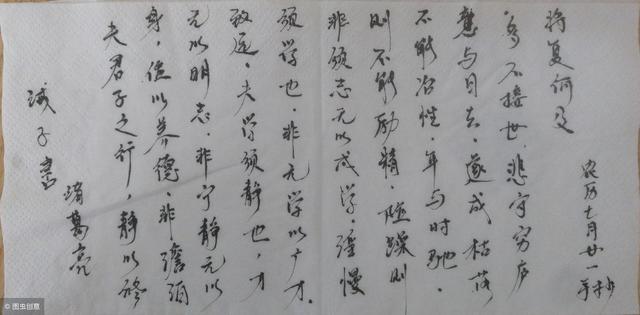 诫子书
诸葛亮
夫君子之行,静以修
身,俭以养德。非澹泊
无以明志。非宁静无以
致远。夫学须静也,才
须学也。非无学以广才.
非须志无以成学。淫慢
则不能励精。险躁则
不能冶性。年与时驰.
意与日去。遂成枯落
多不接世,悲守穷庐
将复何及
农历七月廿一
手抄
© 图虫创意